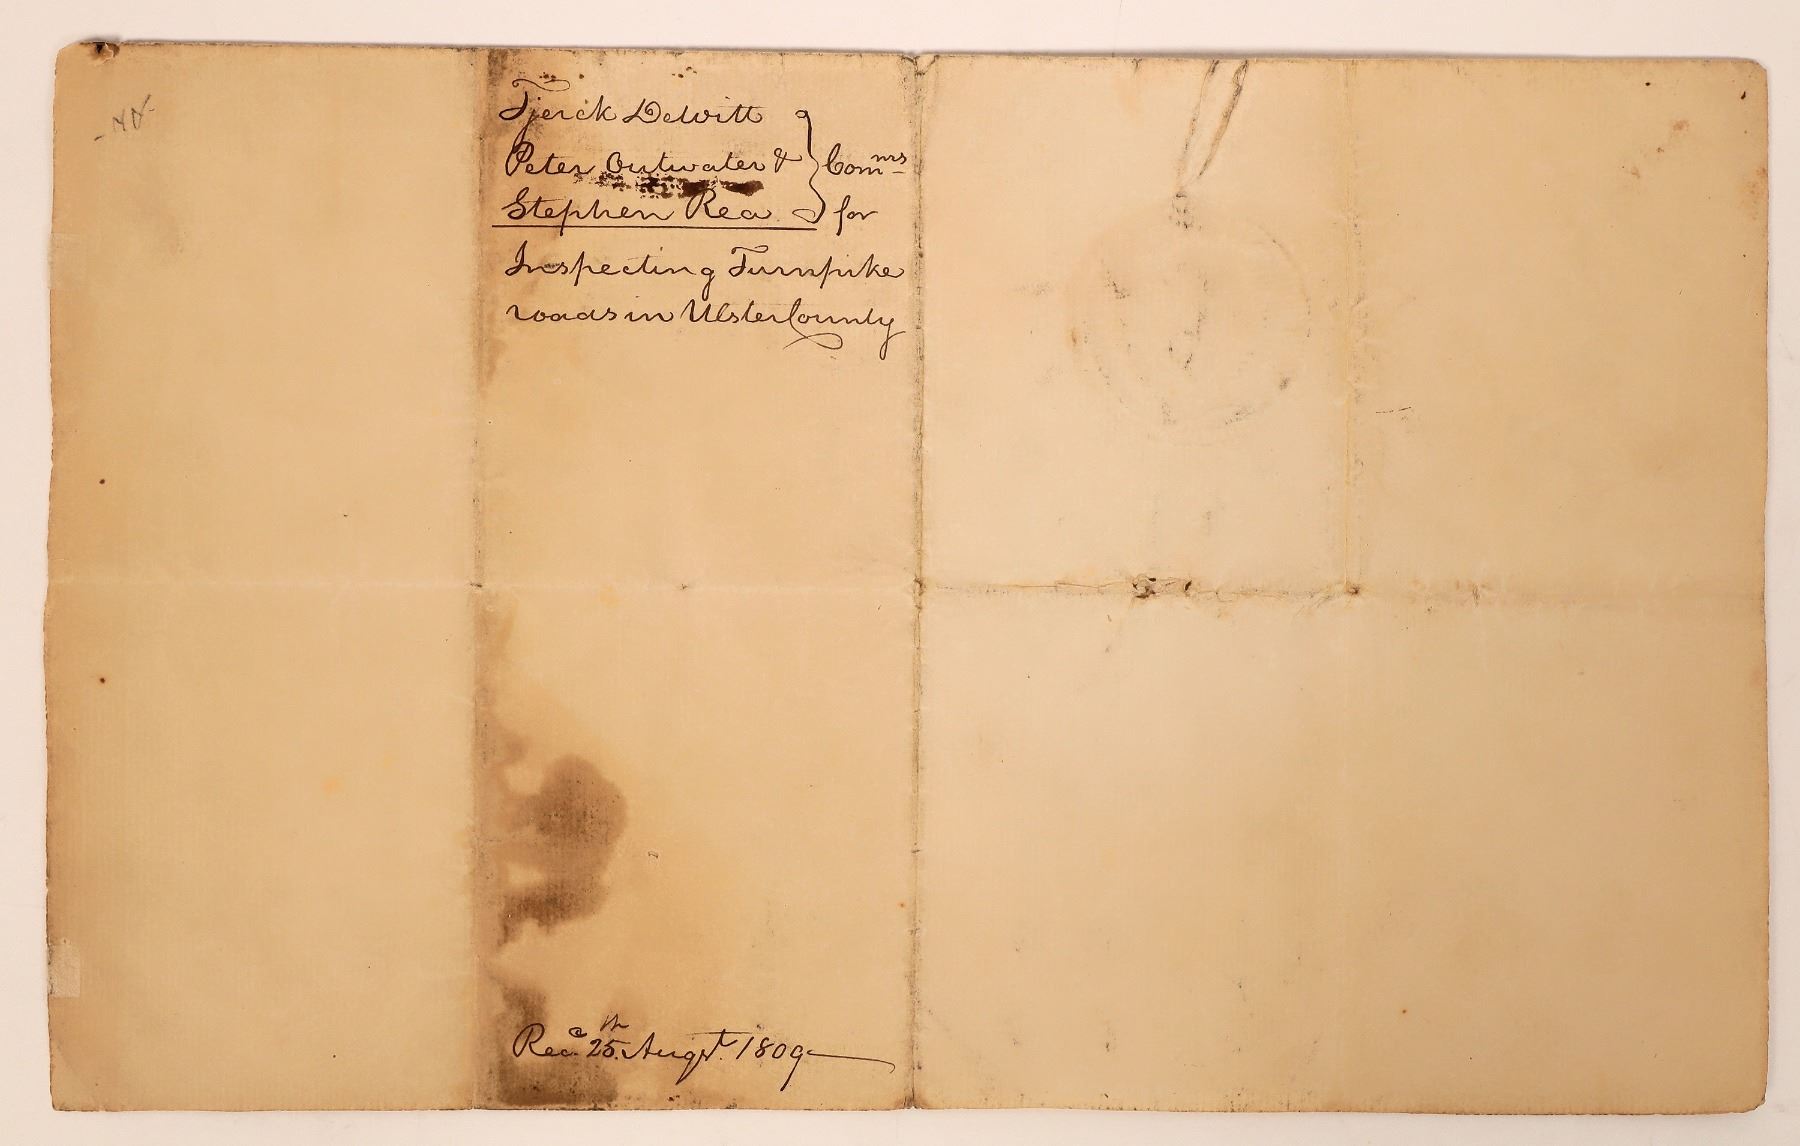 Tjerck Dewitt
Peter Outwater & } Com^mrs
Stephen Rea } for
Inspecting Turnpike
roads in Ulster County
Rec^d. 25^th. Augst. 1809